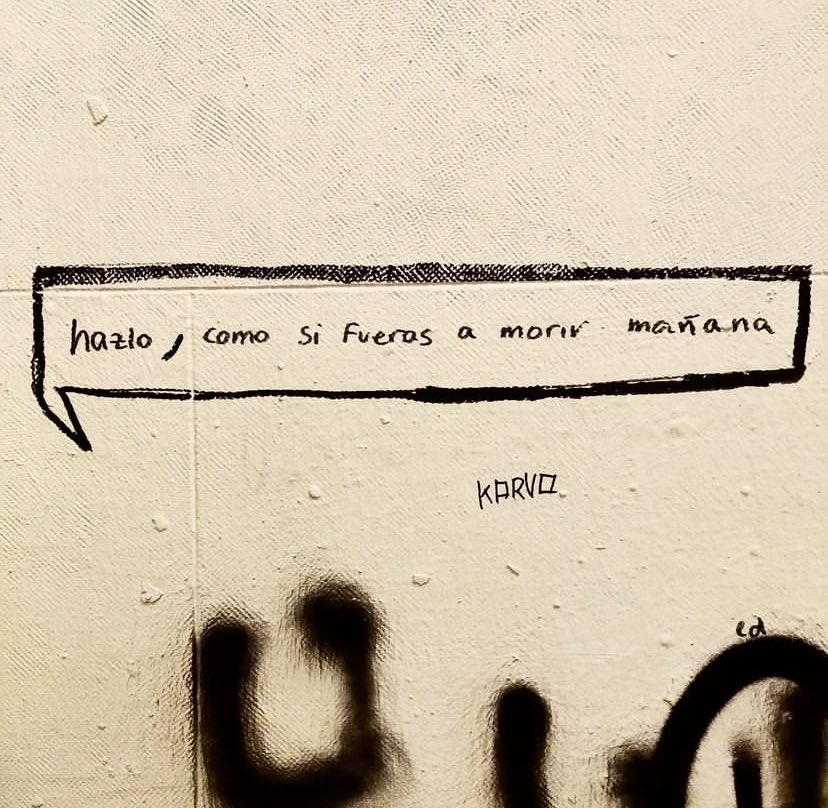 hazlo, como si fueras a morir mañana
KARVO
ed